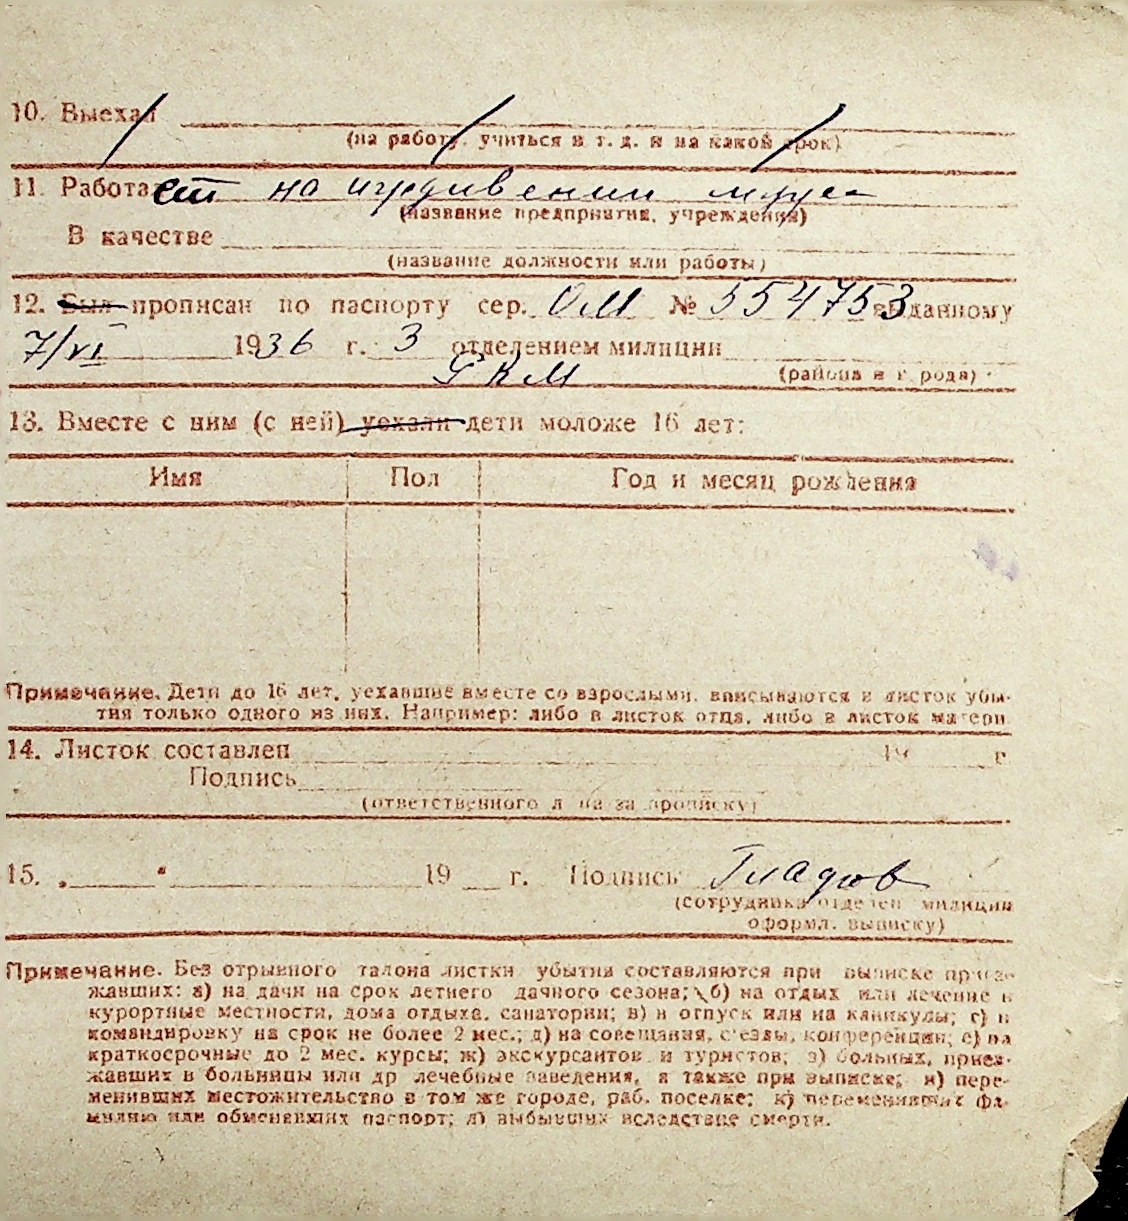 10. Выехал
(на работу, учиться и т. д. и на какой срок)
11. Работает на иждивении мужа
(название предприятия, учреждения)
В качестве
(название должности или работы)
12. Был прописан по паспорту сер. ОМ № 554753 выданному
7/VI 1936 г. 3 отделением милиции
ГКМ
(района и города)
13. Вместе с ним (с ней) уехали дети моложе 16 лет:
Имя Пол Год и месяц рождения
Примечание. Дети до 16 лет, уехавшие вместе со взрослыми, вписываются в листок убы-
тия только одного из них. Например: либо в листок отца, либо в листок матери.
14. Листок составлен 19 г.
Подпись
(ответственного лица за прописку)
15. „ " 19 г. Подпись Гладков
(сотрудника отделен. милиции
оформл. выписку)
Примечание. Без отрывного талона листки убытия составляются при выписке приез-
жавших: а) на дачи на срок летнего дачного сезона; б) на отдых или лечение в
курортные местности, дома отдыха, санатории; в) в отпуск или на каникулы; г) в
командировку на срок не более 2 мес.; д) на совещания, съезды, конференции; е) на
краткосрочные до 2 мес. курсы; ж) экскурсантов и туристов; з) больных, приез-
жавших в больницы или др лечебные заведения, а также при выписке; и) пере-
менивших местожительство в том же городе, раб. поселке; к) переменивших фа-
милию или обменявших паспорт; л) выбывших вследствие смерти.